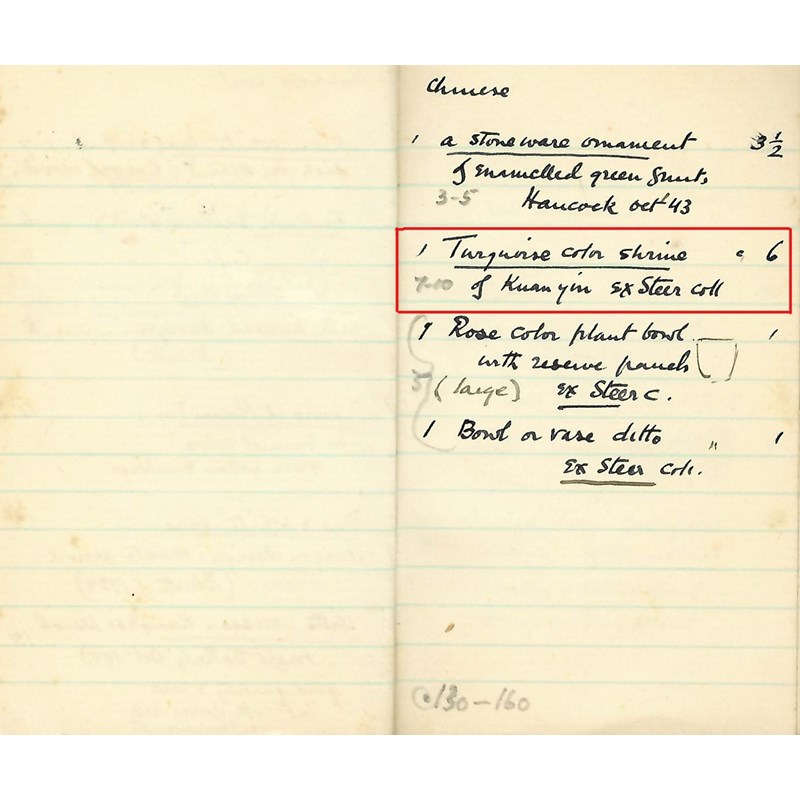 Chinese
1 a stoneware ornament 3½
of enamelled green fruits
3-5 Hancock Oct 43
1 Turquoise color shrine c 6
7-10 of Kuan yin ex Steer coll
1 Rose color plant bowl 1
with reserve panels
5 (large) ex Steer c.
1 Bowl or vase ditto " 1
ex Steer coll.
c 130-160